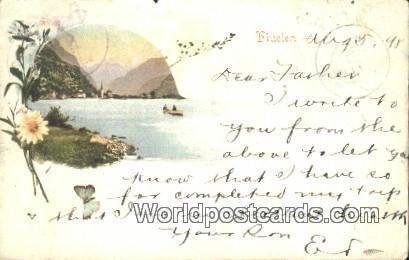 Fluelen Aug 5, 98
Dear Father
I write to
you from the
above to let you
know that I have so
far completed my trip
& that I
Worldpostcards.com
Your Son
Ed